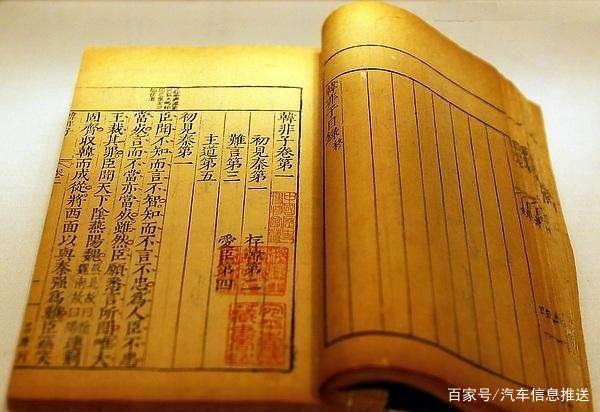 韓非子目錄終
韓非子卷第一
初見秦第一 存韓第二
難言第三 愛臣第四
主道第五
初見秦第一
臣聞不知而言不智知而不言不忠為人臣不忠
當死言而不當亦當死雖然臣願悉言所聞唯大
王裁其罪臣聞天下陰燕陽魏 連荊
固齊收韓而成從將西面以與秦强為難臣竊笑
百家号/汽车信息推送